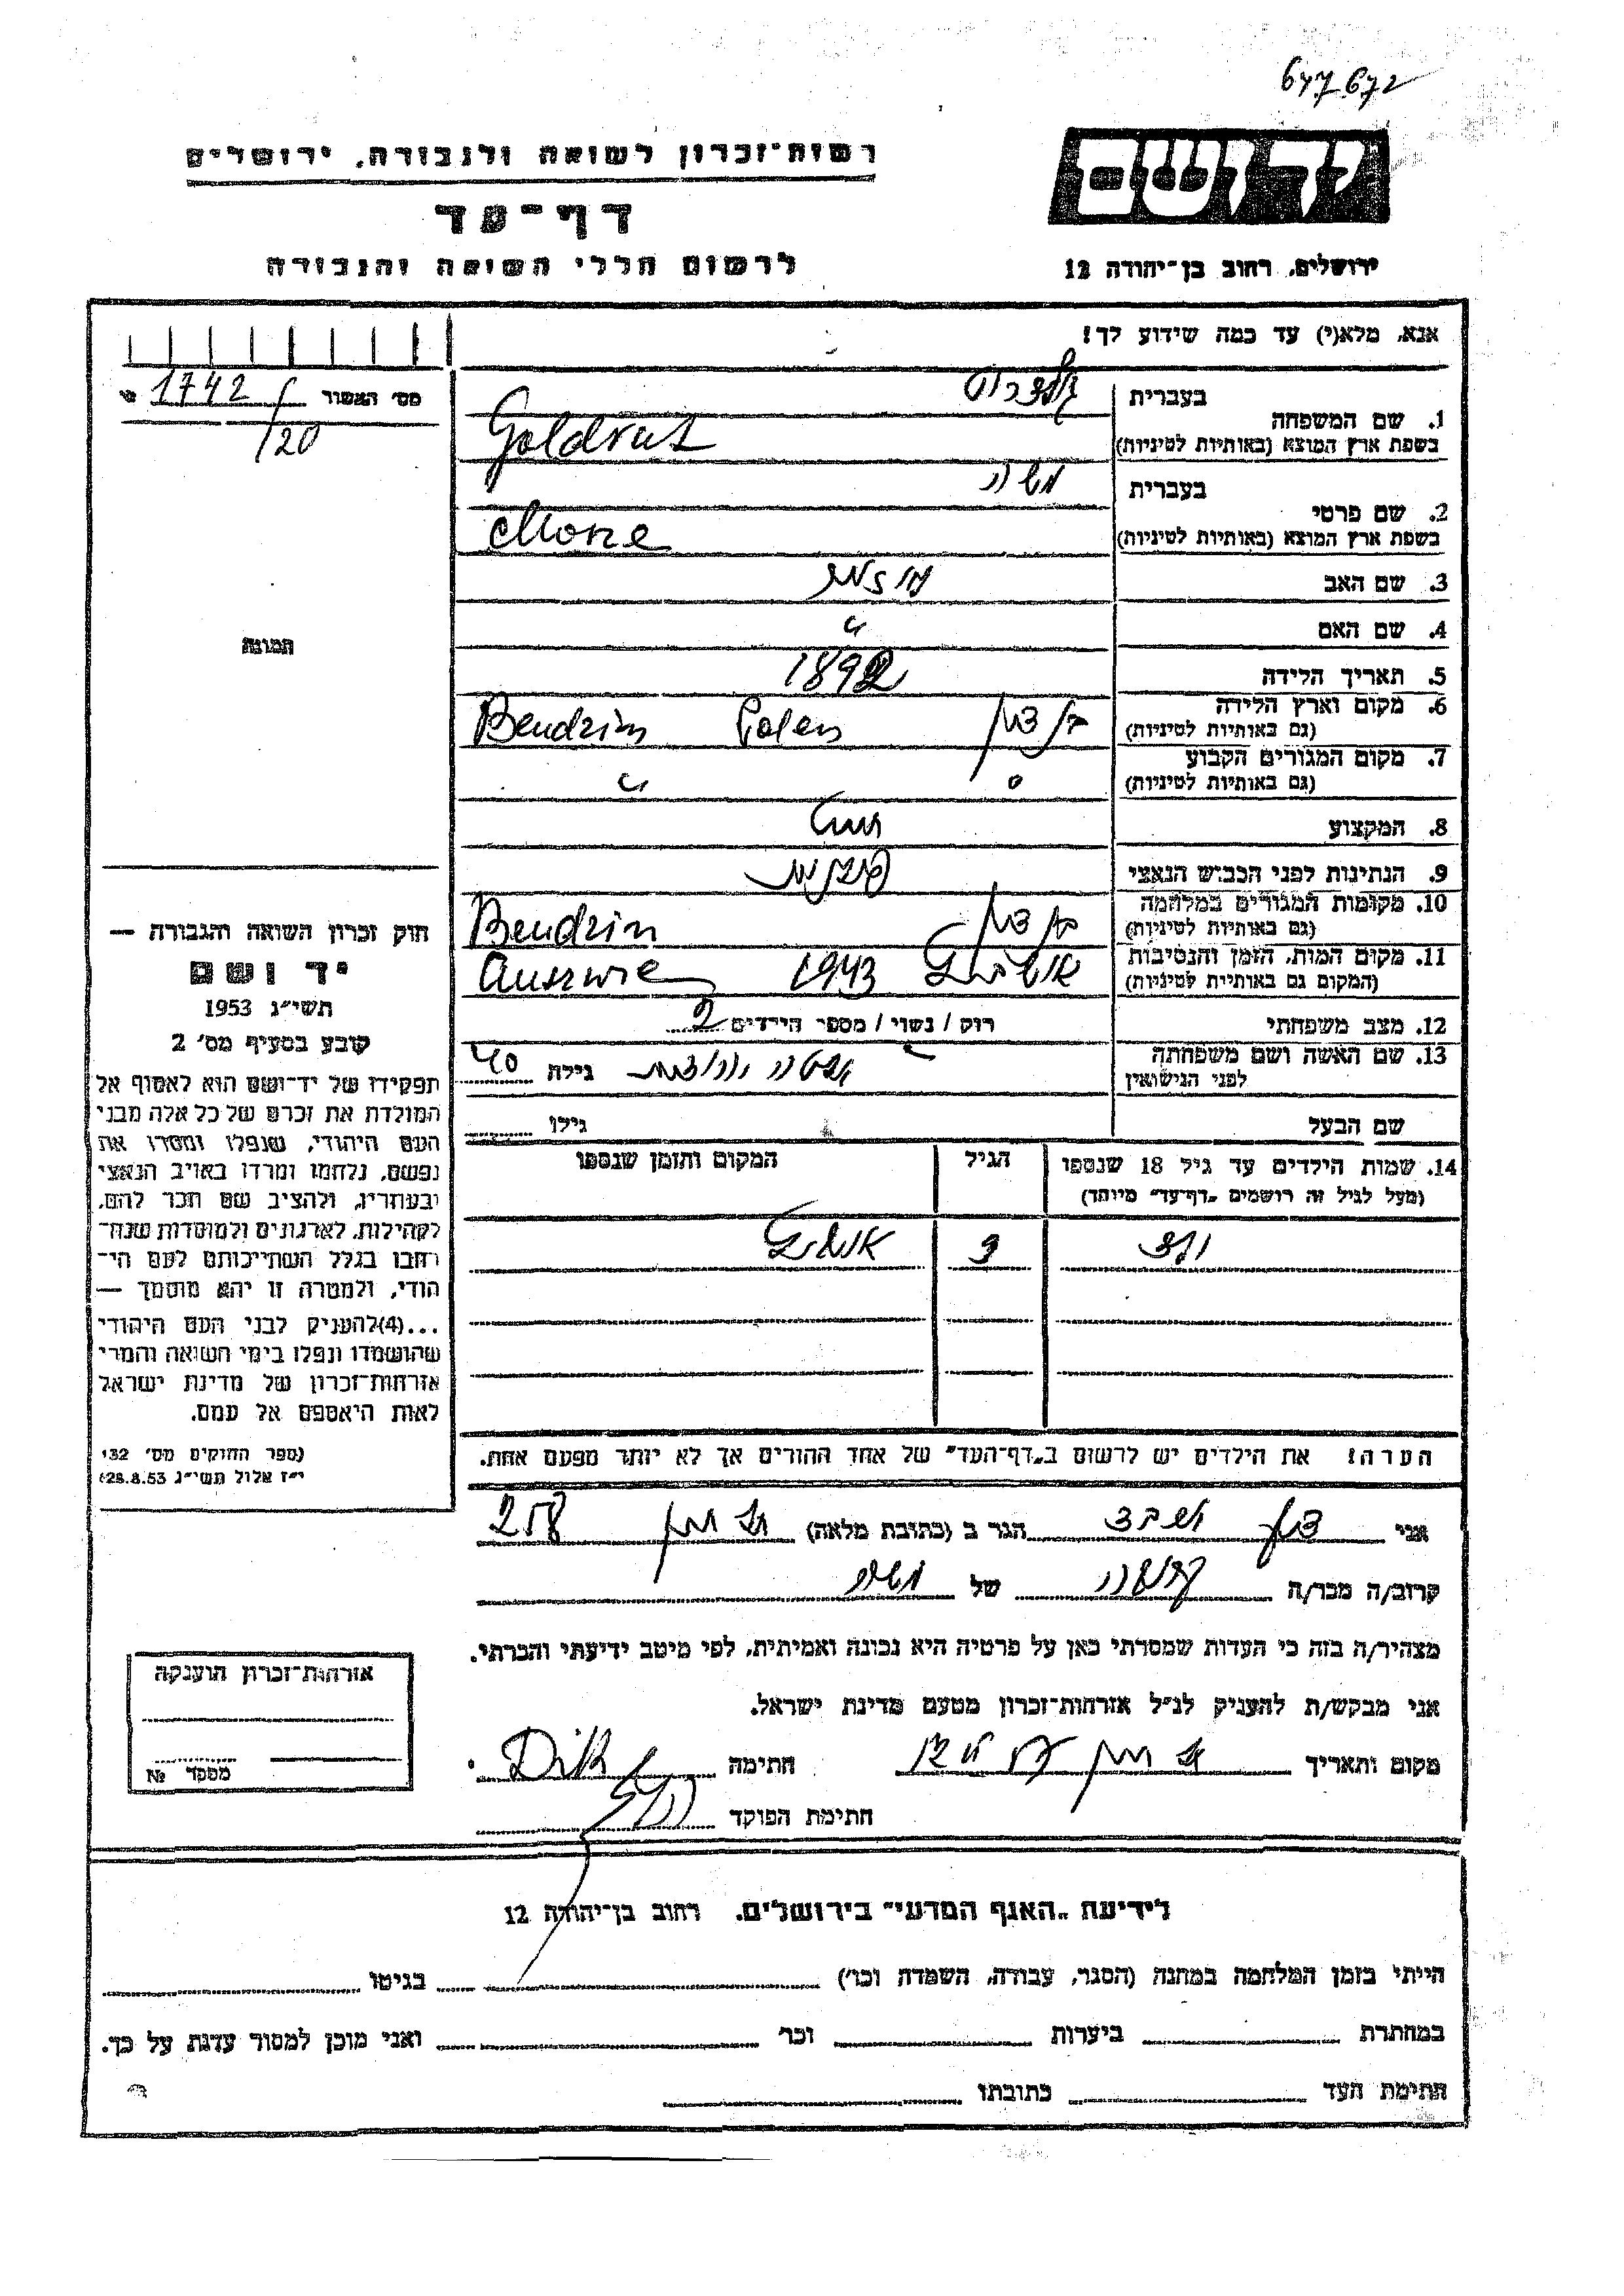 647672
רשות-זכרון לשואה ולגבורה, ירושלים
ידושם
דף-עד
לרשום חללי השואה והגבורה
ירושלים, רחוב בן-יהודה 12
אנא, מלא(י) עד כמה שידוע לך!
מס' האשור 1742
120
1. שם המשפחה
בעברית
בשפת ארץ המוצא (באותיות לטיניות) Goldrat
2. שם פרטי
בעברית משה
בשפת ארץ המוצא (באותיות לטיניות)
3. שם האב
4. שם האם
5. תאריך הלידה 1892
6. מקום וארץ הלידה
(גם באותיות לטיניות) בנדצין Bendzin Polen
7. מקום המגורים הקבוע
(גם באותיות לטיניות) " "
8. המקצוע
9. הנתינות לפני הכבוש הנאצי
10. מקומות המגורים במלחמה
(גם באותיות לטיניות) בנדצין Bendzin
11. מקום המות, הזמן והנסיבות
(המקום גם באותיות לטיניות) 1943
12. מצב משפחתי רוק / נשוי / מספר הילדים 2
13. שם האשה ושם משפחתה
לפני הנישואין גילה 40
שם הבעל גילו
14. שמות הילדים עד גיל 18 שנספו
(מעל לגיל זה רושמים "דף-עד" מיוחד)
הגיל
המקום והזמן שנספו
הערה: את הילדים יש לרשום ב"דף-העד" של אחד ההורים אך לא יותר מפעם אחת.
תמונה
חוק זכרון השואה והגבורה —
יד ושם
תשי"ג 1953
קובע בסעיף מס' 2
תפקידו של יד-ושם הוא לאסוף אל
המולדת את זכרם של כל אלה מבני
העם היהודי, שנפלו ומסרו את
נפשם, נלחמו ומרדו באויב הנאצי
ובעוזריו, ולהציב שם וזכר להם,
לקהילות, לארגונים ולמוסדות שנח-
רבו בגלל השתייכותם לעם הי-
הודי, ולמטרה זו יהא מוסמך —
...(4)להעניק לבני העם היהודי
שהושמדו ונפלו בימי השואה והמרי
אזרחות-זכרון של מדינת ישראל
לאות היאספם אל עמם.
(ספר החוקים מס' 132
י"ז אלול תשי"ג 28.8.53)
אני הגר ב (כתובת מלאה)
קרוב/ה מכר/ה של משה
מצהיר/ה בזה כי העדות שמסרתי כאן על פרטיה היא נכונה ואמיתית, לפי מיטב ידיעתי והכרתי.
אני מבקש/ת להעניק לנ"ל אזרחות-זכרון מטעם מדינת ישראל.
מקום ותאריך חתימה
חתימת הפוקד
אזרחות-זכרון הוענקה
מפקד №
לידיעת "האגף המדעי" בירושלים, רחוב בן-יהודה 12
הייתי בזמן המלחמה במחנה (הסגר, עבודה, השמדה וכו') בגיטו
במחתרת ביערות וכו' ואני מוכן למסור עדות על כך.
חתימת העד כתובתו